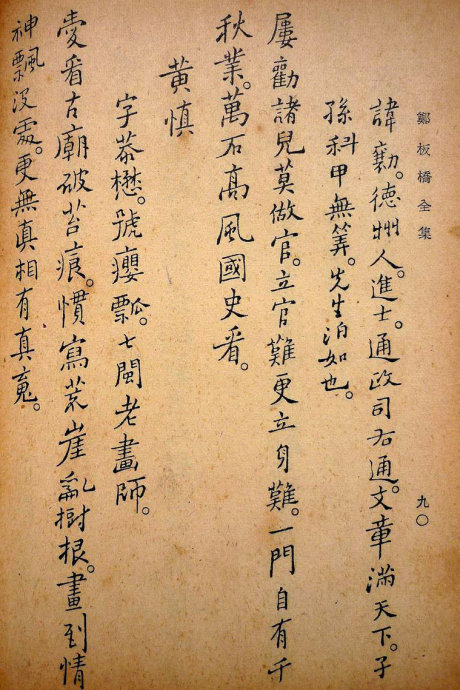 鄭板橋全集
九〇
諱勷。德州人。進士。通政司右通。文章滿天下。子
孫科甲無筭。先生泊如也。
屢勸諸兒莫做官。立官難更立身難。一門自有千
秋業。萬石高風國史看。
黃慎
字恭懋。號癭瓢。七閩老畫師。
愛看古廟破苔痕。慣寫荒崖亂樹根。畫到情
神飄沒處。更無真相有真魂。